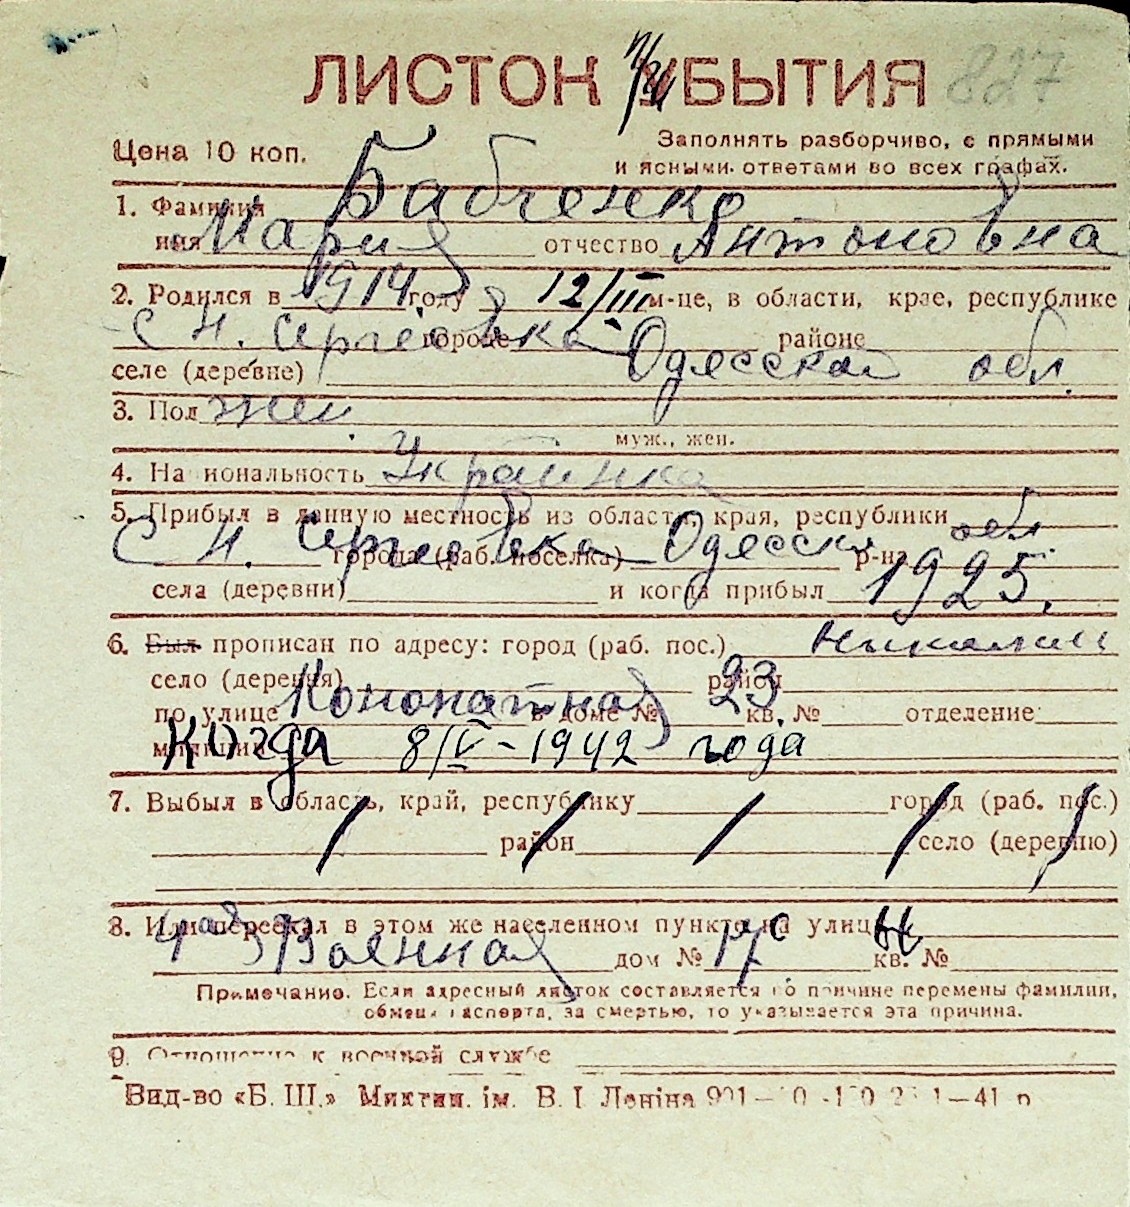 ЛИСТОК УБЫТИЯ 827
Цена 10 коп.
Заполнять разборчиво, с прямыми
и ясными ответами во всех графах.
1. Фамилия Бабченко
имя Мария отчество Антоновна
2. Родился в 1914 году 12/III м-це, в области, крае, республике
С Н. Сергеевка городе Одесской обл. районе
селе (деревне)
3. Пол жен.
муж., жен.
4. Национальность Украинка
5. Прибыл в данную местность из области, края, республики обл.
С Н. Сергеевка города (раб. поселка) Одесск р-на
села (деревни) и когда прибыл 1925.
6. Был прописан по адресу: город (раб. пос.) Николаев
село (деревня) район
по улице Конопатная в доме № 23 кв. № отделение
милиции Когда 8/IV-1942 года
7. Выбыл в область, край, республику город (раб. пос.)
район село (деревню)
8. Или переехал в этом же населенном пункте на улицу
4ая Военная дом № 17 кв. №
Примечание. Если адресный листок составляется по причине перемены фамилии,
обмена паспорта, за смертью, то указывается эта причина.
9. Отношение к военной службе
Вид-во «Б. Ш.» Миктип. ім. В. І. Леніна